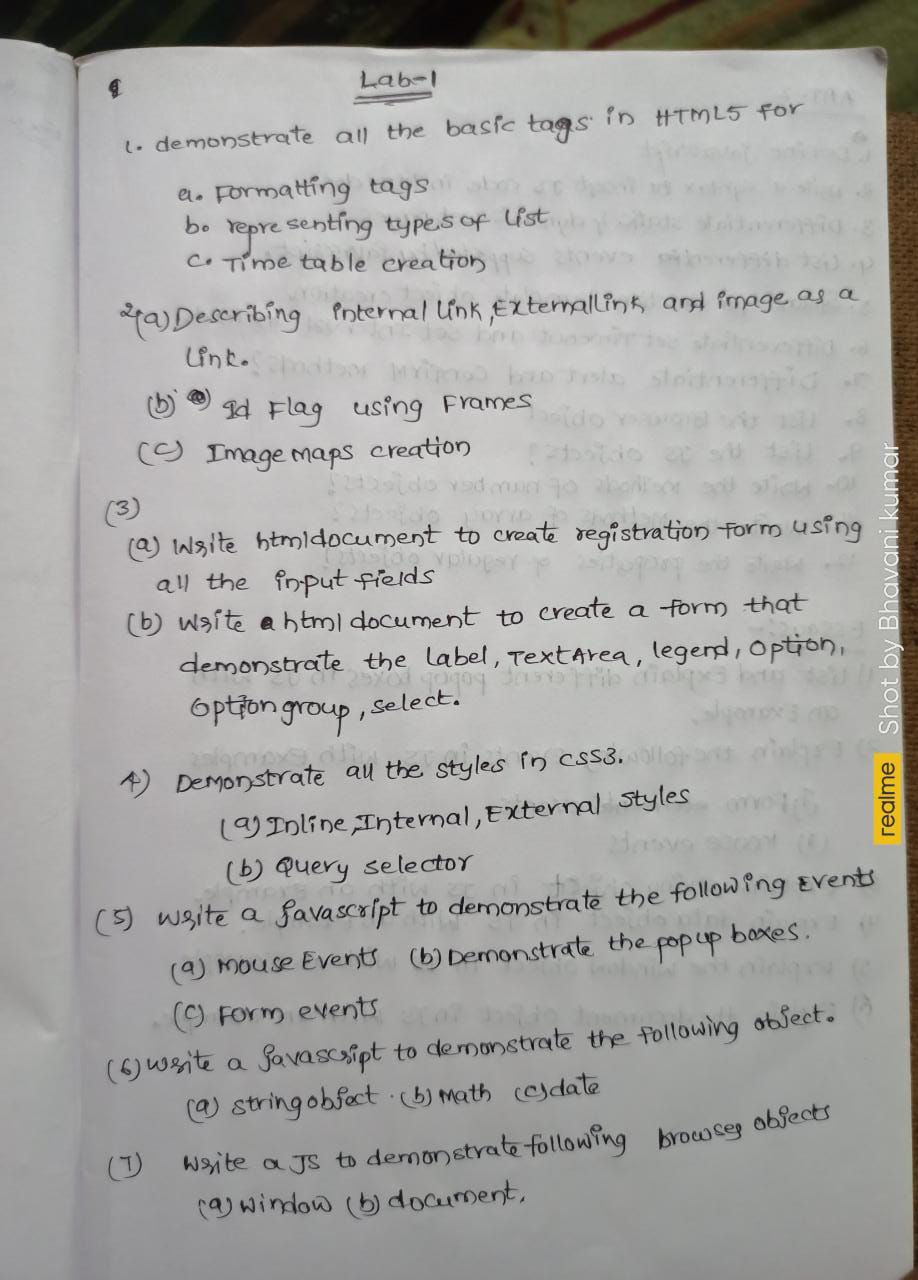 Lab-1
1. demonstrate all the basic tags in HTML5 for
a. Formatting tags
b. representing types of list
c. Time table creation
2(a) Describing internal link, External link and image as a
link.
(b) Id Flag using Frames
(c) Image maps creation
(3)
(a) Write html document to create registration form using
all the input fields
(b) write a html document to create a form that
demonstrate the label, TextArea, legend, option,
option group, select.
4) Demonstrate all the styles in css3.
(a) Inline, Internal, External styles
(b) Query selector
(5) write a Javascript to demonstrate the following Events
(a) mouse Events (b) Demonstrate the pop up boxes.
(c) Form events
(6) write a Javascript to demonstrate the following object.
(a) string object. (b) Math (c) date
(7) write a JS to demonstrate following browser objects
(a) window (b) document.
realme Shot by Bhavani kumar